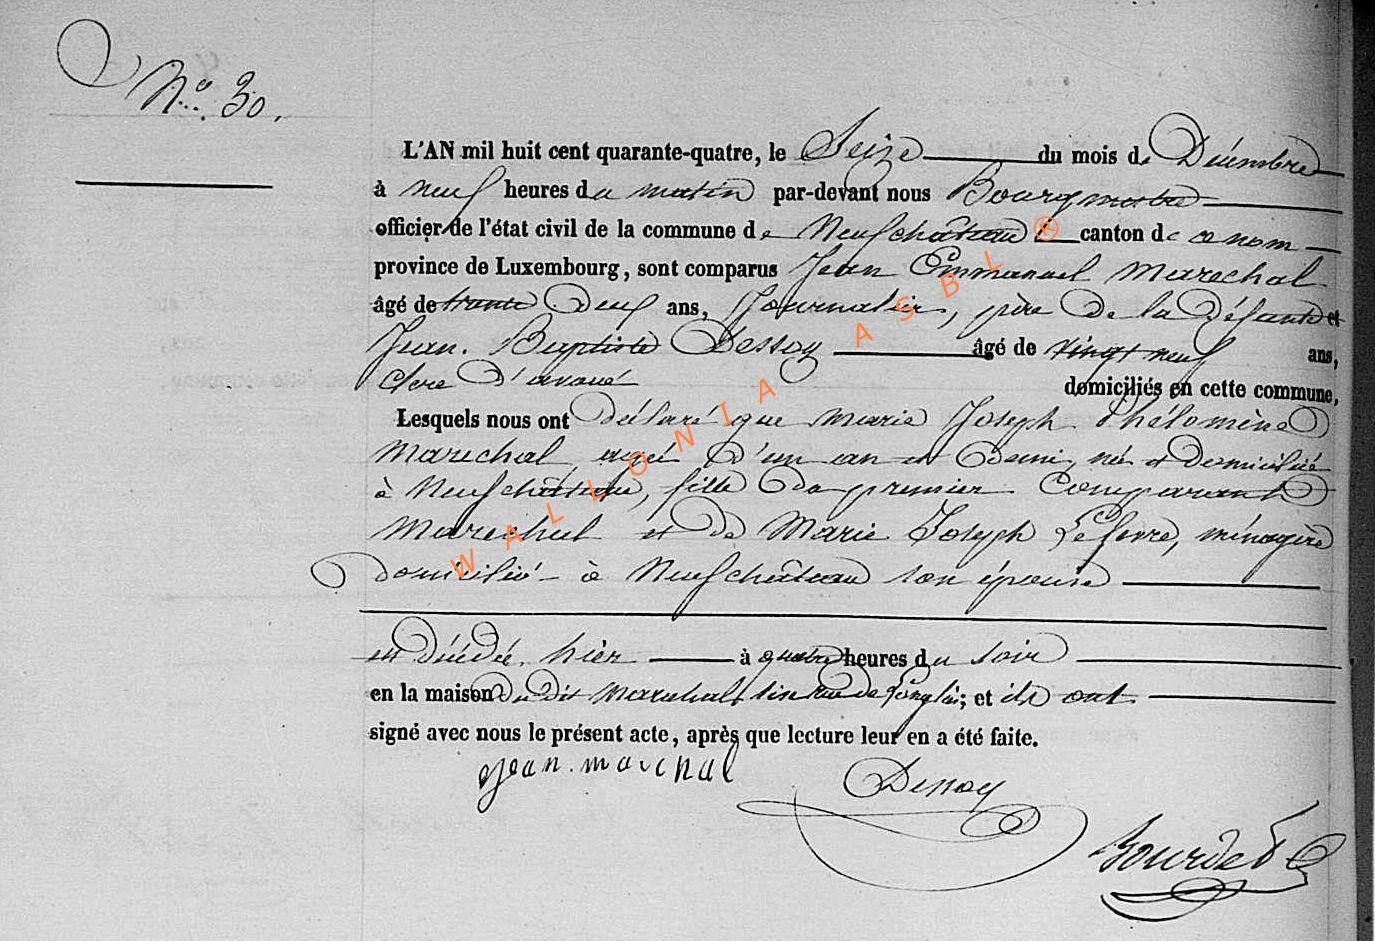 N.º 30.
L'AN mil huit cent quarante-quatre, le Seize du mois de Décembre
à neuf heures du matin par-devant nous Bourgmestre
officier de l'état civil de la commune de Neufchâteau canton de ce nom
province de Luxembourg, sont comparus Jean Emmanuel Marechal
âgé de trente deux ans, Journalier, père de la défunte et
Jean Baptiste Dessoy âgé de vingt neuf ans,
clerc d'avoué domiciliés en cette commune,
Lesquels nous ont déclaré que Marie Joseph Phélomène
Marechal, agée d'un an et demi, née et domiciliée
à Neufchâteau, fille du premier Comparant
Marechal et de Marie Joseph Lefevre, ménagère
domiciliée à Neufchâteau son épouse
est décédée hier à quatre heures du soir
en la maison du dit Marechal, sise rue de Longlier; et ils ont
signé avec nous le présent acte, après que lecture leur en a été faite.
Jean marchal
Dessoy
WALLONIA ASBL ®